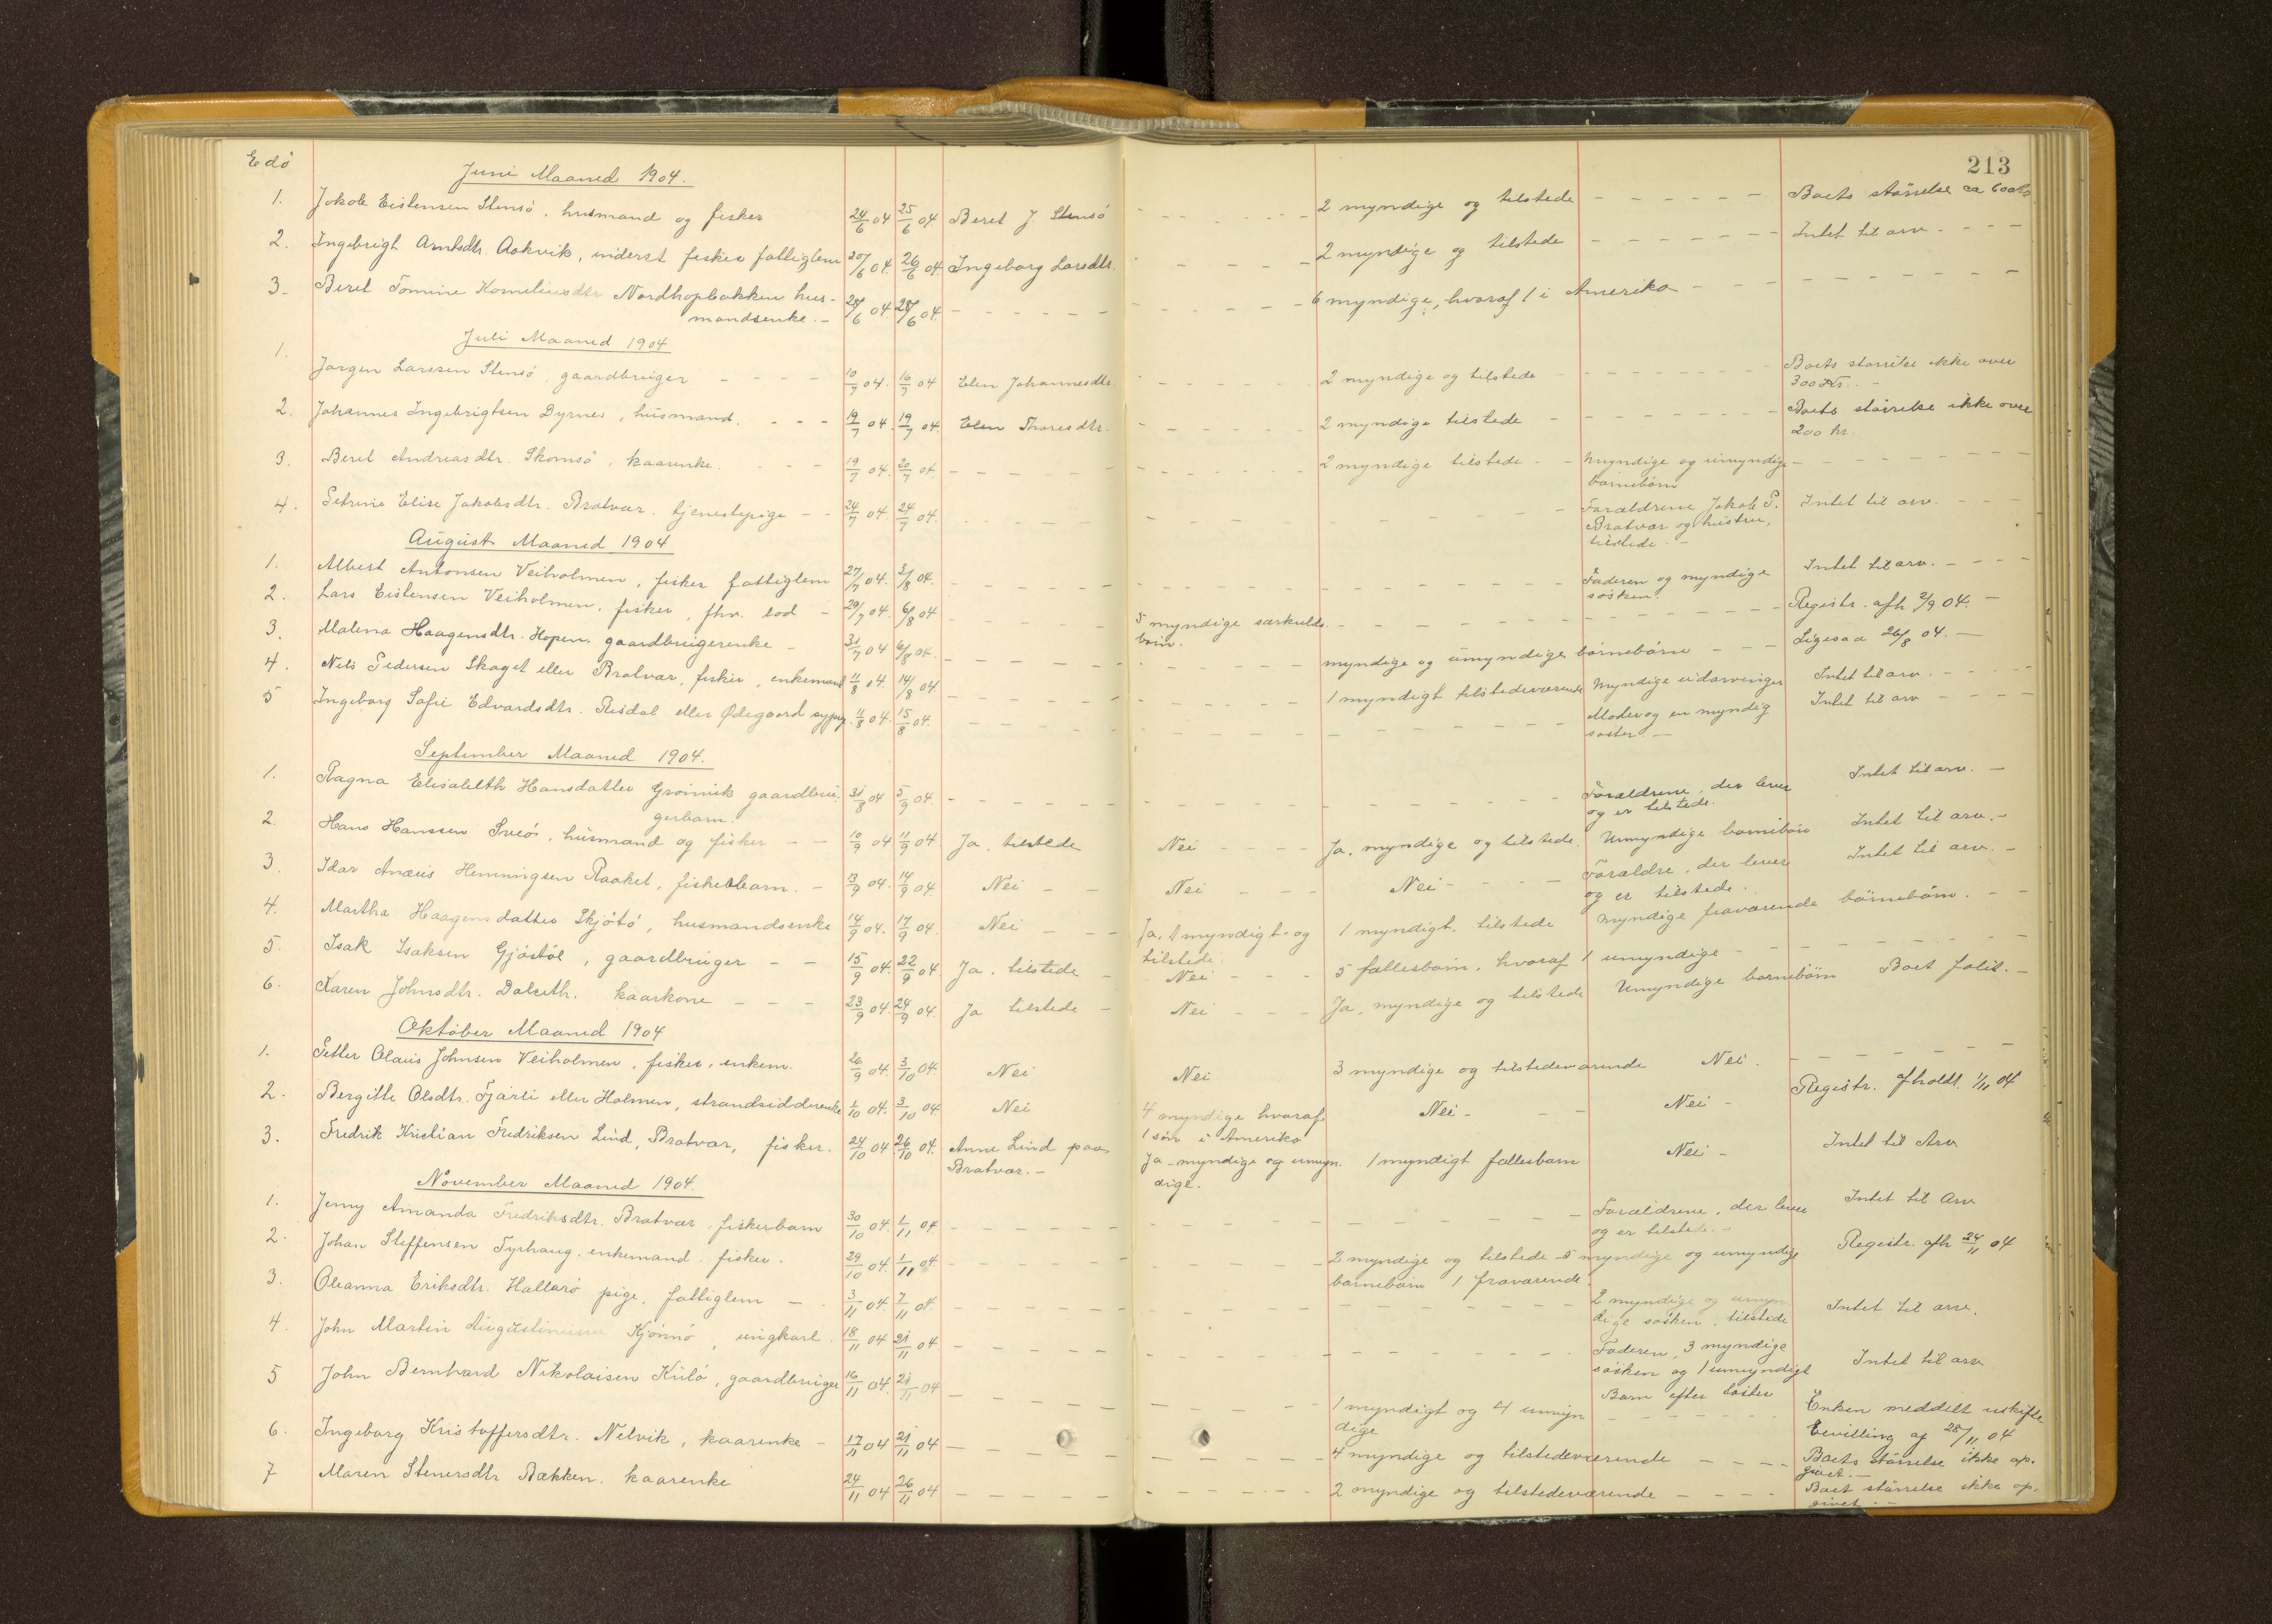 Edö
213
Juni Maaned 1904.
1. Jakob Eistensen Stensö, husmand og fisker 24/6 04 25/6 04. Beret J Stensö - - - 2 myndige og tilstede - - - Boets störrelse ca 600 kr
2. Ingebrigt Arntsdtr. Aakvik, inderst fisker fattiglem 20/6 04. 26/6 04. Ingeborg Larsdtr. - - - 2 myndige og tilstede - - - Intet til arv. - - -
3. Beret Tomine Korneliusdtr Nordhopbakken hus- 25/6 04 28/6 04. - - - 6 myndige, hvoraf 1 i Amerika - - -
mandsenke. -
Juli Maaned 1904
1. Jørgen Larssen Stensö, gaardbruger - - - 10/7 04. 16/7 04 Elen Johannesdtr. - - - 2 myndige og tilstede - - - Boets störrelse ikke over
300 Kr. -
2. Johannes Ingebrigtsen Dyrnes, husmand. - - - 12/7 04. 19/7 04. Elen Thoresdtr. - - - 2 myndige tilstede - - - Boets störrelse ikke over
200 kr
3. Beret Andreasdtr. Skomsö, kaarenke. - - - 19/7 04. 20/7 04. - - - 2 myndige tilstede - - myndige og umyndige - - -
barnebörn
4. Petrine Elise Jakobsdtr. Bratvær. tjenestepige - - 24/7 04. 24/7 04. - - - Forældrene Jakob P. Intet til arv. - - -
Bratvær og hustru,
tilstede. -
August Maaned 1904
1. Albert Antonsen Veiholmen, fisker fattiglem 27/7 04. 3/8 04. - - - Faderen og myndige Intet til arv. - - -
søsken.
2. Lars Eistensen Veiholmen, fisker, fhv. lods - 29/7 04. 6/8 04 - - - 5 myndige særkulds - - - Registr. afh 2/9 04. -
börn.
3. Malena Haagensdtr. Hopen. gaardbrugerenke - 31/7 04 6/8 04. - - - myndige og umyndige børnebörn - - - Ligesaa 26/8 04. -
4. Nels Pedersen Skaget eller Bratvær, fisker, enkemand 11/8 04. 14/8 04. - - - 1 myndigt tilstedeværende Myndige udarvinger Intet til arv. - -
5 Ingeborg Sofie Edvardsdtr. Risdal eller Ødegaard sypig. 11/8 04. 15/8 04. - - - Moder og en myndig Intet til arv - - -
søster -
September Maaned 1904.
1. Ragna Elisabeth Hansdatter Grönnvik gaardbru- 31/8 04 5/9 04. - - - Forældrene, der lever Intet til arv. -
gerbarn. og er tilstede.
2. Hans Hanssen Sveö, husmand og fisker - - 10/9 04 11/9 04. Ja, tilstede Nei - - - Ja, myndige og tilstede. Umyndige barnebörn Intet til arv. -
3. Idar Anæus Henningsen Raaket, fiskerbarn. - 13/9 04. 14/9 04 Nei - - Nei - - - Nei - - - Forældre, der lever Intet til arv. -
og er tilstede.
4. Martha Haagensdatter Skjötö, husmandsenke 14/9 04. 17/9 04. Nei - - - Ja, 1 myndigt og 1 myndigt. tilstede myndige fraværende börnebörn. - -
tilstede.
5. Isak Isaksen Gjöstöl, gaardbruger - - 15/9 04. 22/9 04. Ja. tilstede - Nei - - - 5 fællesbörn, hvoraf 1 umyndige - - -
6. Karen Johnsdtr. Dalseth. kaarkone - - - 23/9 04. 24/9 04. Ja tilstede - Nei - - - Ja, myndige og tilstede Umyndige barnebörn Boet fallit. -
Oktober Maaned 1904
1. Petter Olaus Johnsen Veiholmen, fisker, enkem. 26/9 04. 3/10 04. Nei Nei 3 myndige og tilstedeværende Nei. - - -
2. Bergitte Olsdtr. Fjærli eller Holmen, strandsidderenke 1/10 04. 3/10 04. Nei 4 myndige hvoraf Nei - - - Nei - Registr. afholdt 1/11 04
1 sön i Amerika
3. Fredrik Kristian Fredriksen Lind, Bratvær, fisker. 24/10 04 26/10 04. Anne Lind paa Ja - myndige og umyn- 1 myndigt fællesbarn Nei - Intet til Arv
Bratvær. - dige.
November Maaned 1904.
1. Jenny Amanda Fredriksdtr. Bratvær, fiskerbarn 30/10 04. 1/11 04. - - - Forældrene, der lever Intet til Arv
og er tilstede. -
2. Johan Steffensen Tyrhaug. enkemand. fisker. 29/10 04. 1/11 04. - - - 2 myndige og tilstede - 5 myndige og umyndige Registr. afh 24/11 04
barnebörn 1 fraværende.
3. Oleanna Eriksdtr. Hallarö pige, fattiglem - 3/11 04. 7/11 04. - - - 2 myndige og umyn- Intet til arv.
dige søsken, tilstede
4. John Martin Augustinussen Kjönnö, ungkarl. 18/11 04 21/11 04. - - - Faderen, 3 myndige Intet til arv
søsken og 1 umyndigt
Barn efter søster
5 John Bernhard Nikolaisen Kulö, gaardbruger 16/11 04. 21/11 04 - - - 1 myndigt og 4 umyn - - - Enken meddelt uskifte
dige Bevilling af 28/11 04
6. Ingeborg Kristoffersdtr. Nelvik, kaarenke - 17/11 04 21/11 04 - - - 4 myndige og tilstedeværende - - - Boets störrelse ikke op-
givet. -
7 Maren Stenersdtr Bækken. kaarenke 24/11 04 26/11 04 - - - 2 myndige og tilstedeværende - - - Boet störrelse ikke op-
givet. -